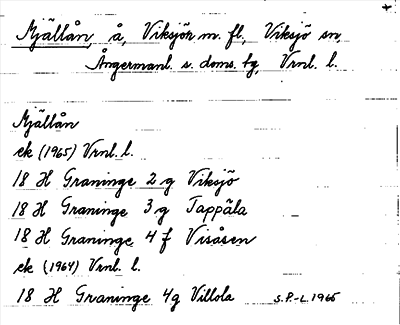 Mjällån, å, Viksjön m. fl., Viksjö sn,
Ångermanl. s. doms. tg, Vrnl. l.
Mjällån
ek (1965) Vrnl. l.
18 H Graninge 2 g Viksjö
18 H Graninge 3 g Tappäla
18 H Graninge 4 f Visåsen
ek (1964) Vrnl. l.
18 H Graninge 4g Villola s.P.-L. 1965